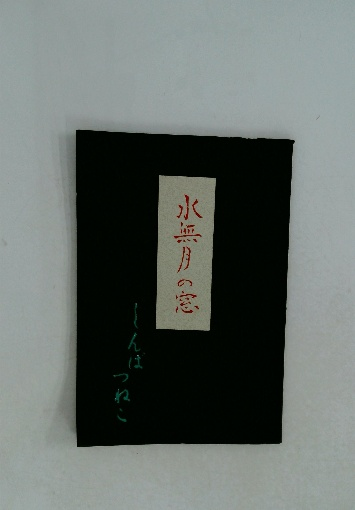 水無月の窓
しんぽ つねこ